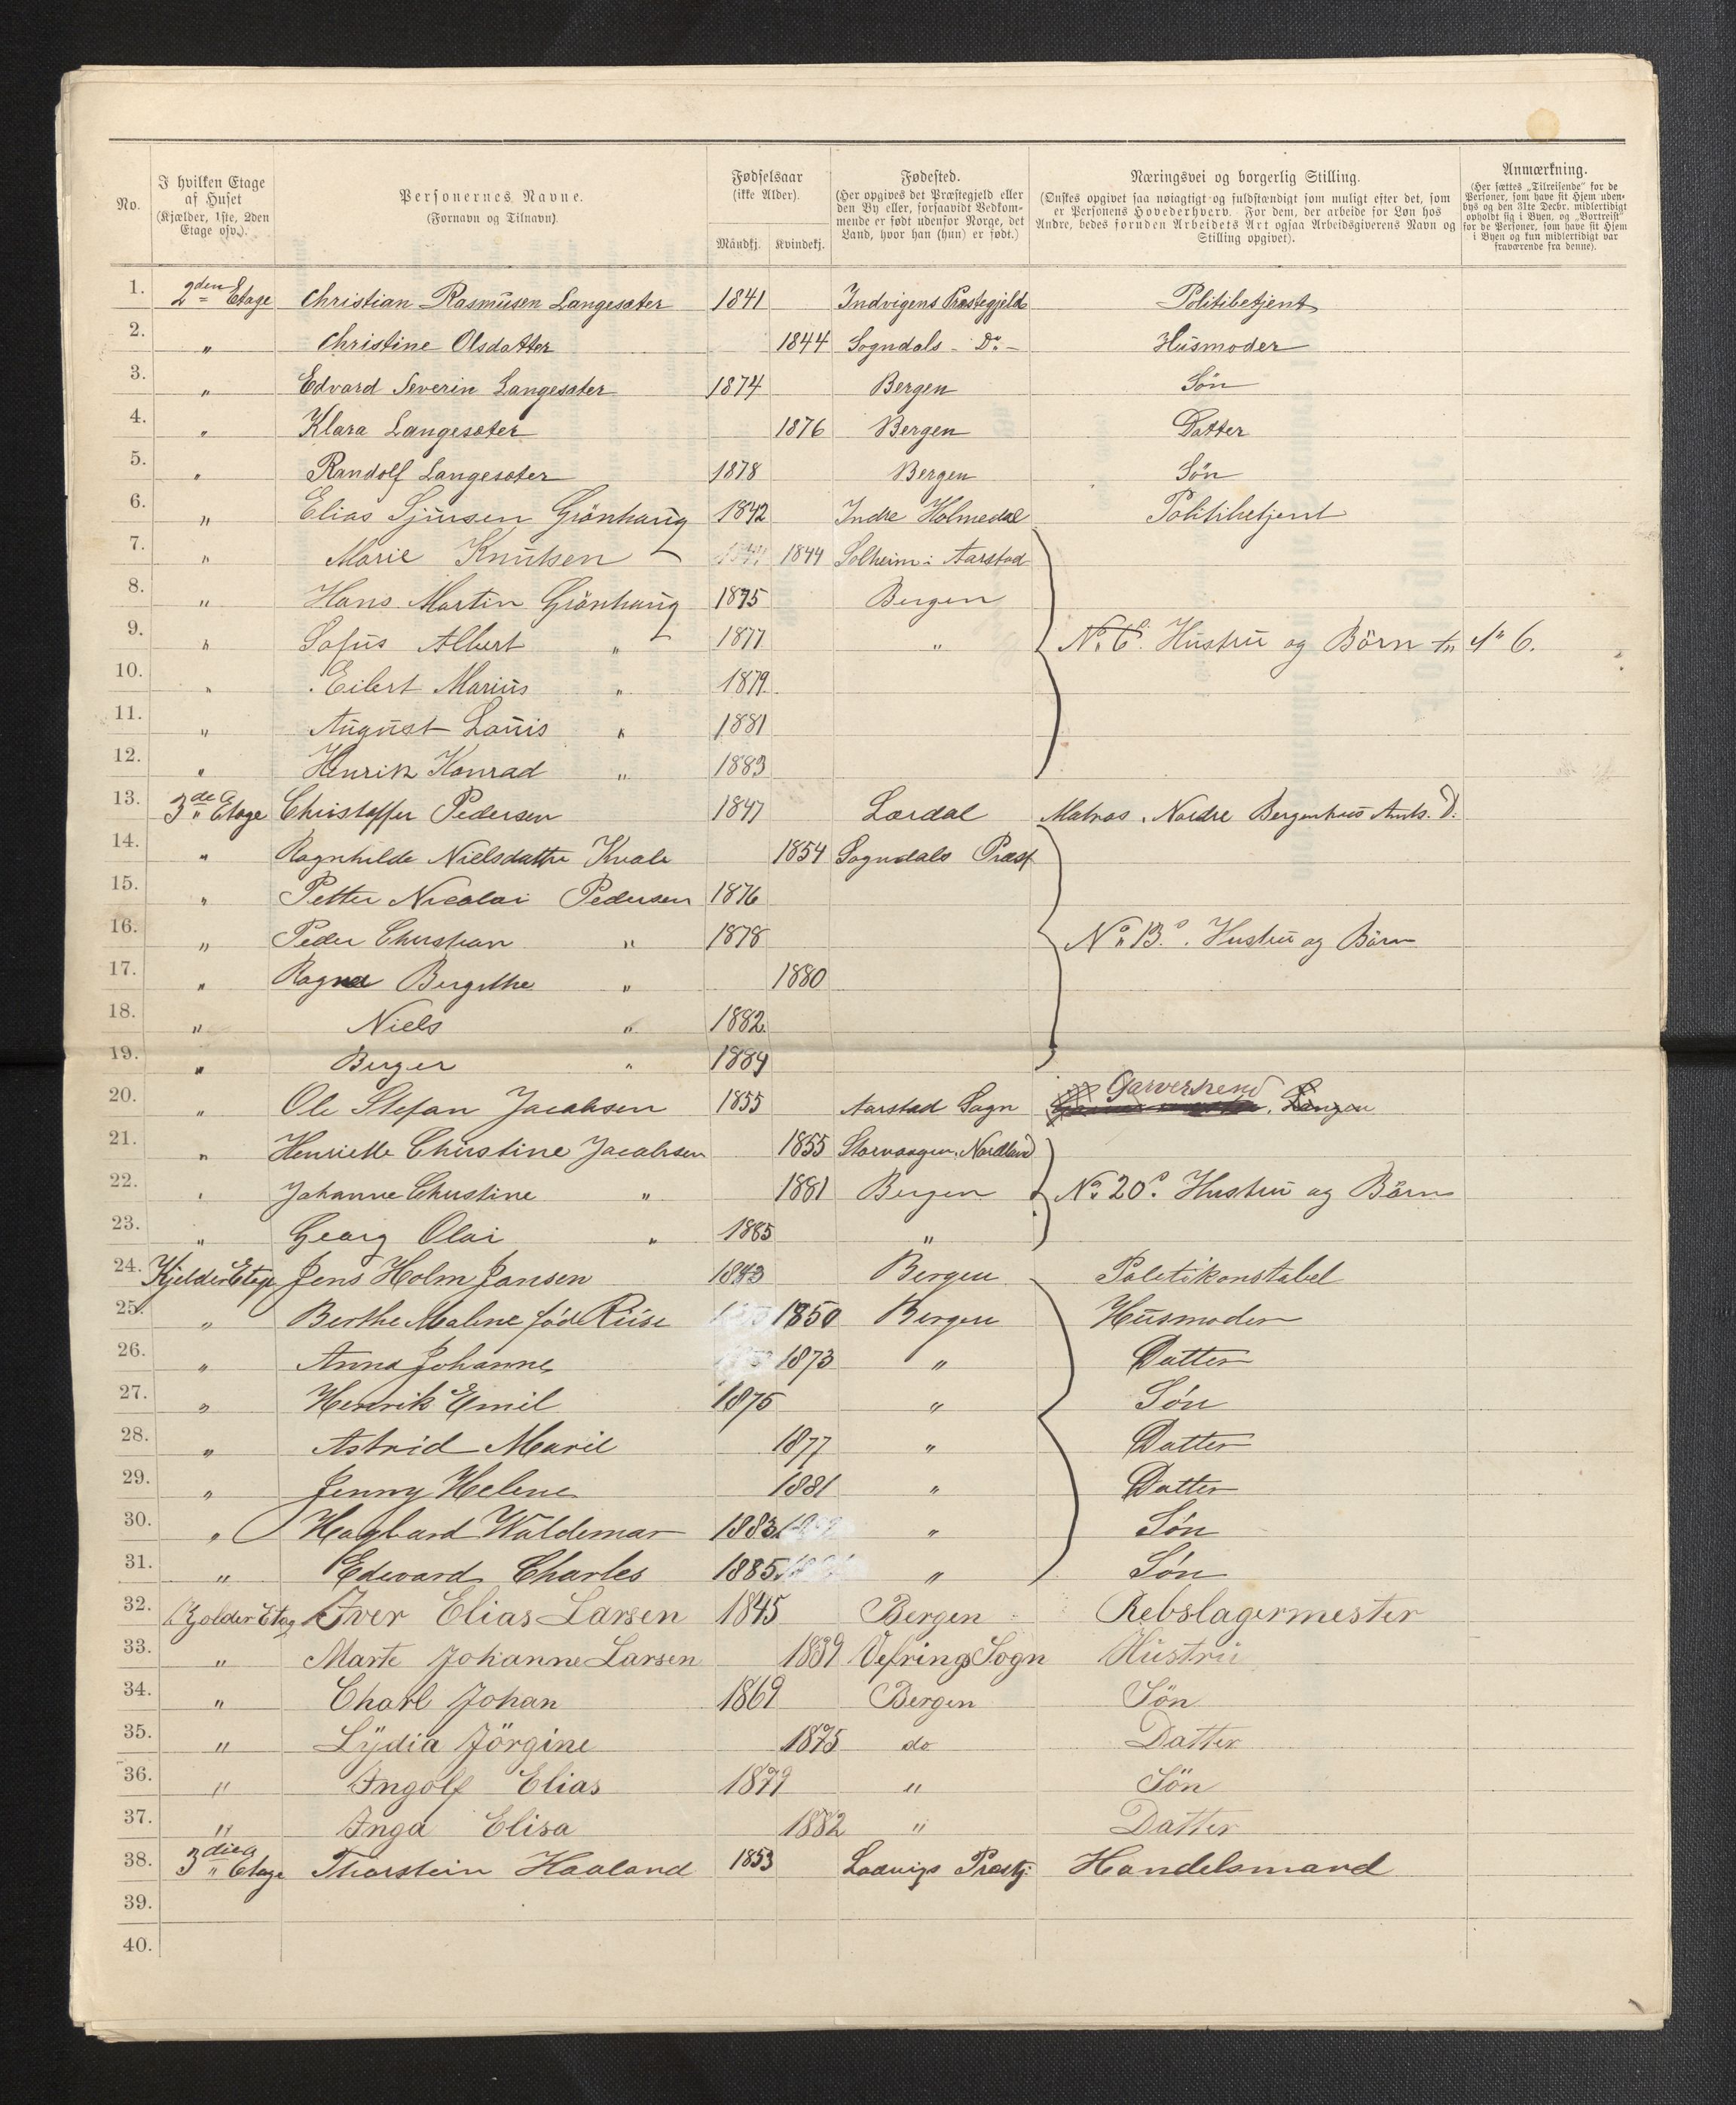 No.
I hvilken Etage af Huset (Kjælder, 1ste, 2den Etage osv.).
Personernes Navne. (Fornavn og Tilnavn).
Fødselsaar (ikke Alder).
Mandkj. Kvindekj.
Fødested. (Her opgives det Præstegjeld eller den By eller, forsaavidt Vedkommende er født udenfor Norge, det Land, hvor han (hun) er født.)
Næringsvei og borgerlig Stilling. (Ønskes opgivet saa nøiagtigt og fuldstændigt som muligt efter det, som er Personens Hovederhverv. For dem, der arbeide for Løn hos Andre, bedes foruden Arbeidets Art ogsaa Arbeidsgiverens Navn og Stilling opgivet).
Anmærkning. (Her sættes „Tilreisende“ for de Personer, som have sit Hjem udenbys og den 31te Decbr. midlertidigt opholdt sig i Byen, og „Bortreist“ for de Personer, som have sit Hjem i Byen og kun midlertidigt var fraværende fra denne).
1. 2den Etage Christian Rasmusen Langesæter 1841 Indvigens Præstegjeld Politibetjent
2. " Christine Olsdatter 1844 Sogndals - Do - Husmoder
3. " Edvard Severin Langesæter 1874 Bergen Søn
4. " Klara Langesæter 1876 Bergen Datter
5. " Randolf Langesæter 1878 Bergen Søn
6. " Elias Sjursen Grönhaug 1842 Indre Holmedal Politibetjent
7. " Marie Knutsen 1844 Solheim i Aarstad
8. " Hans Martin Grönhaug 1875 Bergen
9. " Sofus Albert " 1877 " No 6. Hustru og Börn 6.
10. " Eilert Marius " 1879
11. " August Louis " 1881
12. " Henrik Konrad " 1883
13. 3de Etage Christoffer Pedersen 1847 Lærdal Matros, Nordre Bergenhus Amts. D.
14. " Ragnhilde Nielsdatter Kvale 1854 Sogndals Præst
15. " Petter Nicolai Pedersen 1876
16. " Peder Christian " 1878 No 13. Hustru og Börn
17. " Ragna Bergithe " 1880
18. " Niels " 1882
19. " Berger " 1884
20. " Ole Stefan Jacobsen 1855 Aarstad Sogn Garversvend
21. " Henriette Christine Jacobsen 1855 Storvaagen, Nordland
22. " Johanne Christine " 1881 Bergen No 20. Hustru og Börn
23. " Georg Olai " 1885 "
24. Kjelder Etage Jens Holm Jansen 1843 Bergen Politikonstabel
25. " Berthe Malene fød Riise 1850 Bergen Husmoder
26. " Anna Johanne 1873 " Datter
27. " Henrik Emil 1875 " Søn
28. " Astrid Marie 1877 " Datter
29. " Jenny Helene 1881 " Datter
30. " Hagbard Waldemar 1883 " Søn
31. " Edward Charles 1885 " Søn
32. Kjolder Etag Iver Elias Larsen 1845 Bergen Rebslagermester
33. " Marte Johanne Larsen 1839 Vefrings Sogn Hustru
34. " Charl Johan 1869 Bergen Sön
35. " Lydia Jörgine 1875 do Datter
36. " Ingolf Elias 1879 " Sön
37. " Inga Elisa 1882 " Datter
38. 3die Etage Thorstein Haaland 1853 Ladvigs Præstgj. Handelsmand
39.
40.